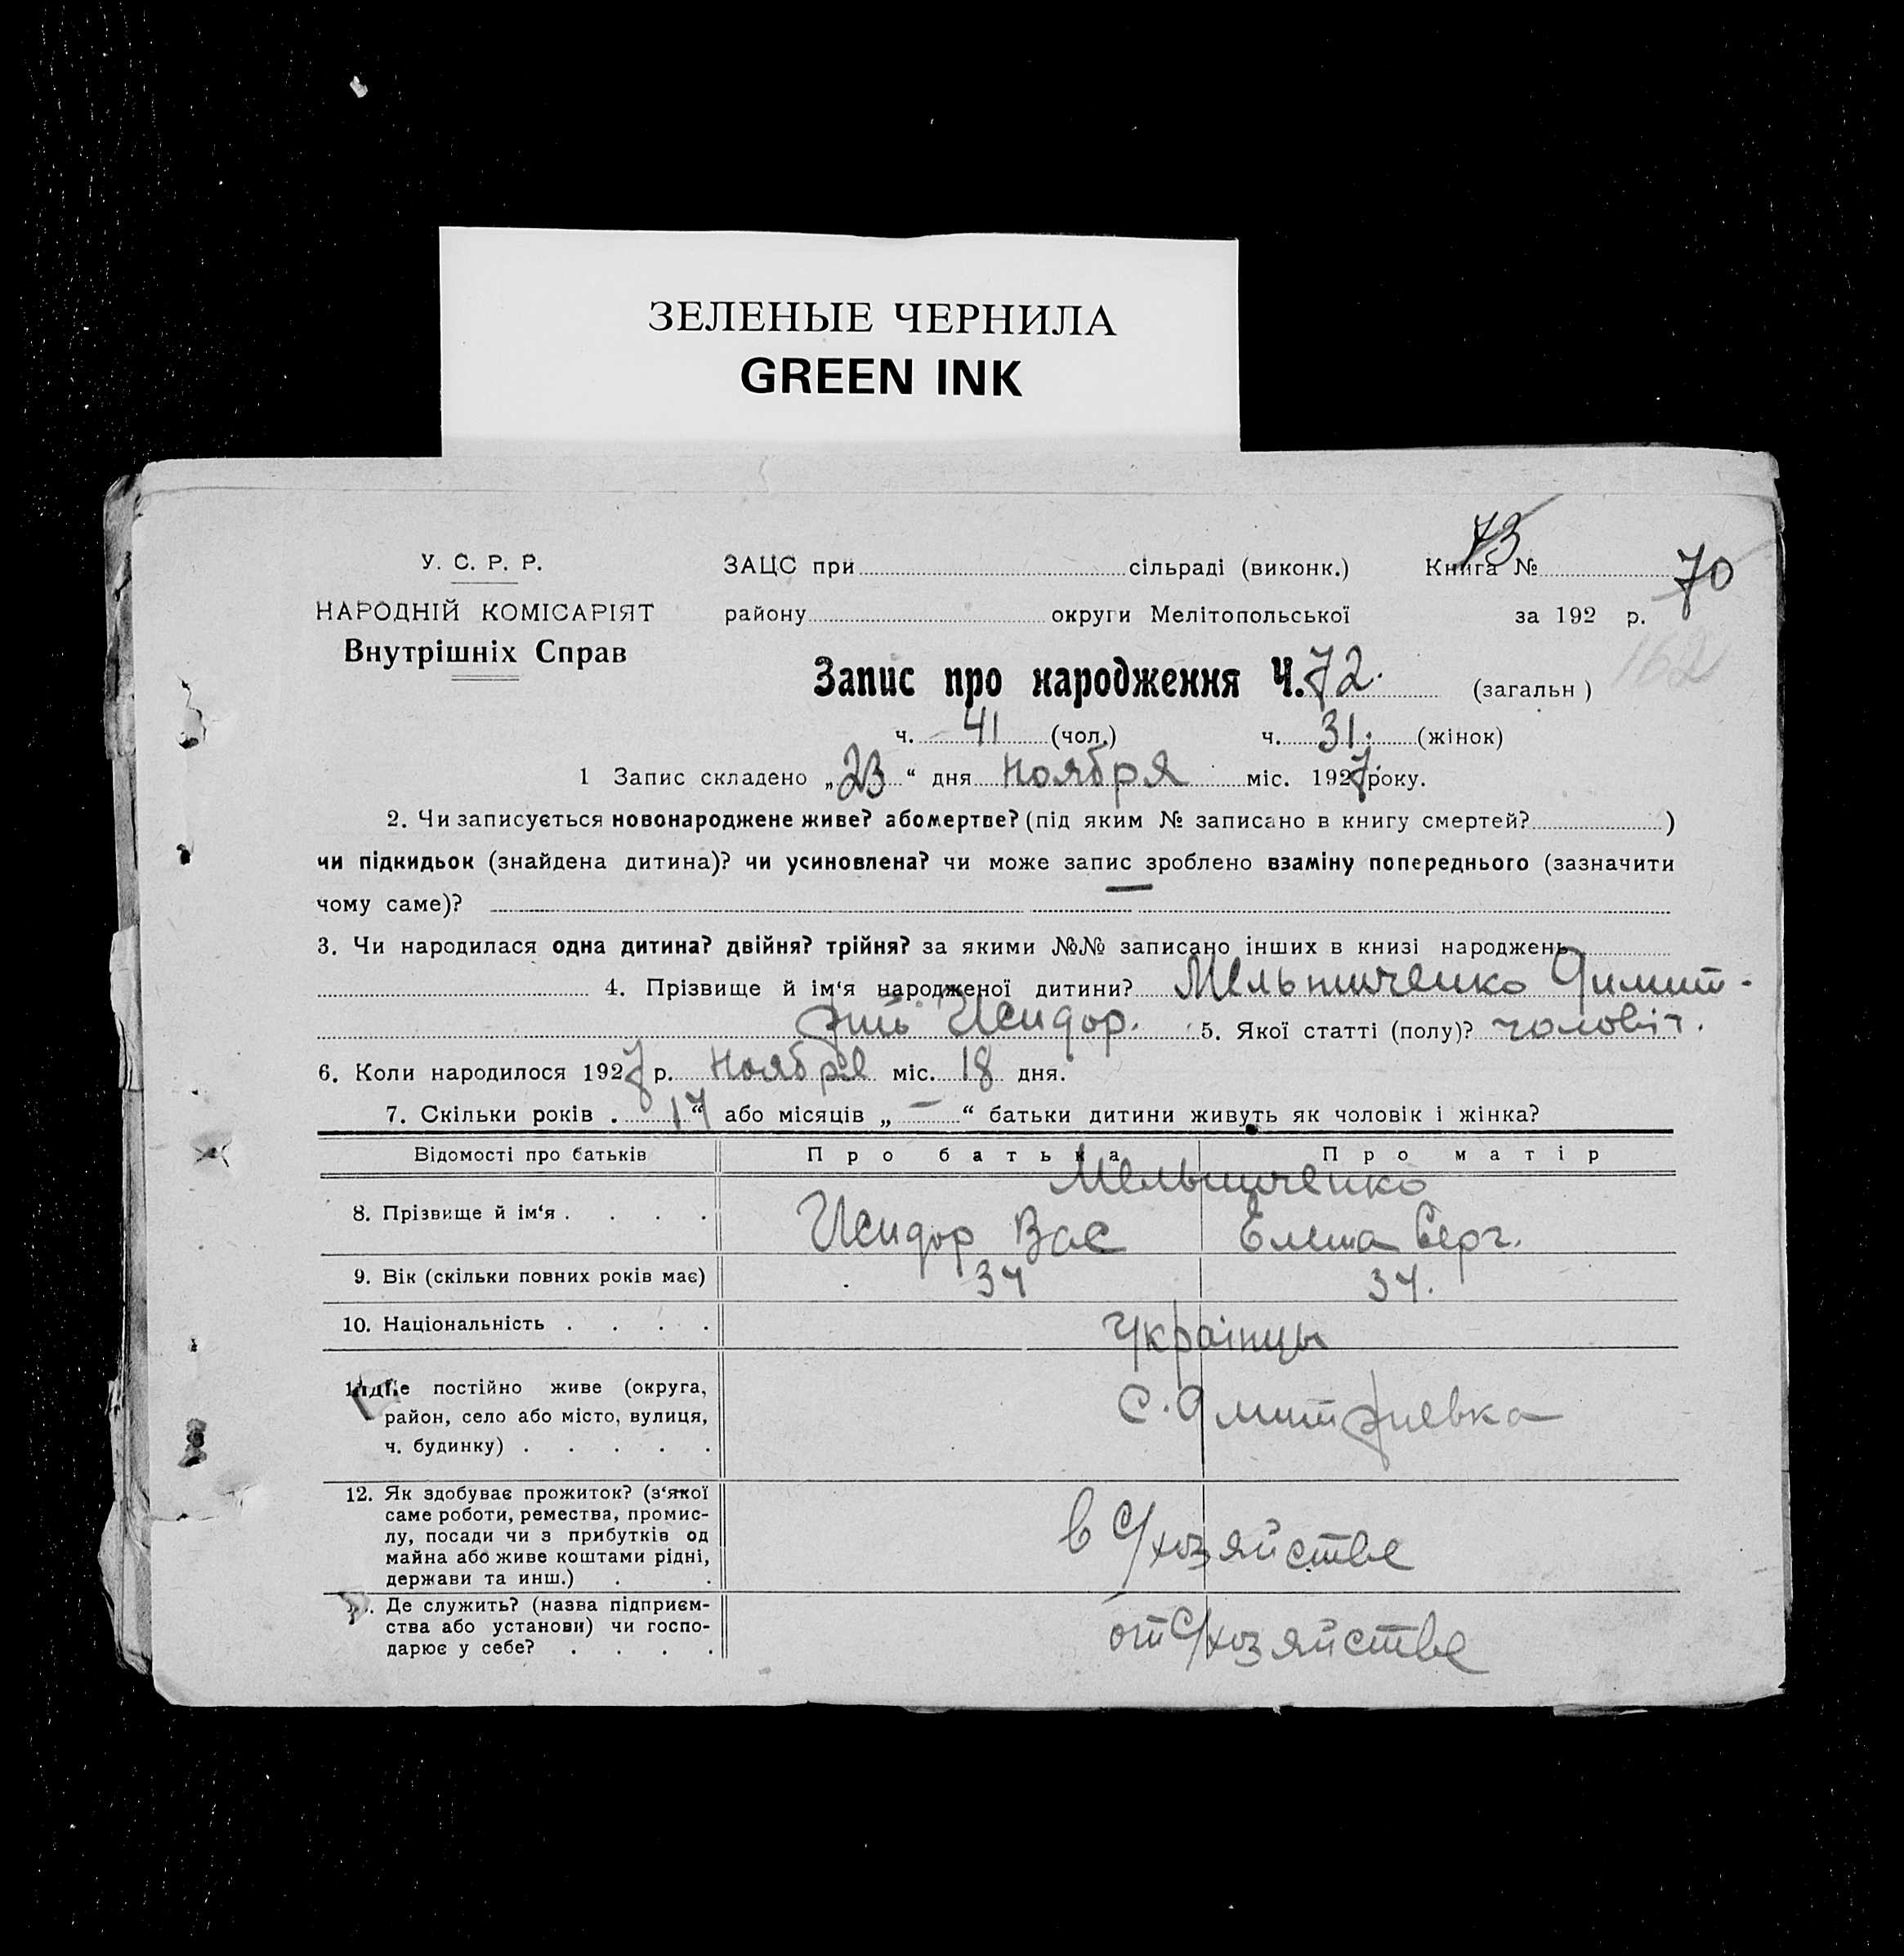 ЗЕЛЕНЫЕ ЧЕРНИЛА
GREEN INK
73
У. С. Р. Р.
ЗАЦС при сільраді (виконк.) Книга № 70
НАРОДНІЙ КОМІСАРІЯТ
району округи Мелітопольської за 192 р.
Внутрішніх Справ
162
Запис про народження Ч. 72. (загальн)
ч. 41 (чол.) ч. 31. (жінок)
1 Запис складено „23“ дня ноября міс. 1927 року.
2. Чи записується новонароджене живе? або мертве? (під яким № записано в книгу смертей? )
чи підкидьок (знайдена дитина)? чи усиновлена? чи може запис зроблено взаміну попереднього (зазначити
чому саме)? —
3. Чи народилася одна дитина? двійня? трійня? за якими №№ записано інших в книзі народжень
4. Прізвище й ім‘я народженої дитини? Мельниченко Димит-
рий Исидор. 5. Якої статті (полу)? чоловіч.
6. Коли народилося 1927 р. ноября міс. 18 дня.
7. Скільки років . 17“ або місяців „ — “ батьки дитини живуть як чоловік і жінка?
Відомості про батьків Про батька Про матір
Мельниченко
8. Прізвище й ім‘я . . . . Исидор Вас Елена Серг.
9. Вік (скільки повних років має) 34 34.
10. Національність . . . . Українцы
11. Де постійно живе (округа,
район, село або місто, вулиця,
ч. будинку) . . . . .
С. Дмитриевка
12. Як здобуває прожиток? (з‘якої
саме роботи, ремества, промис-
лу, посади чи з прибутків од
майна або живе коштами рідні,
держави та инш.) . .
в с/хозяйстве
Де служить? (назва підприєм-
ства або установи) чи госпо-
дарює у себе? . . . .
от с/хозяйстве